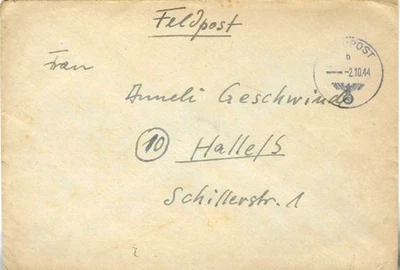 Feldpost
Frau
Anneli Geschwind
(10) Halle/S
Schillerstr. 1
POST
b
-2.10.44